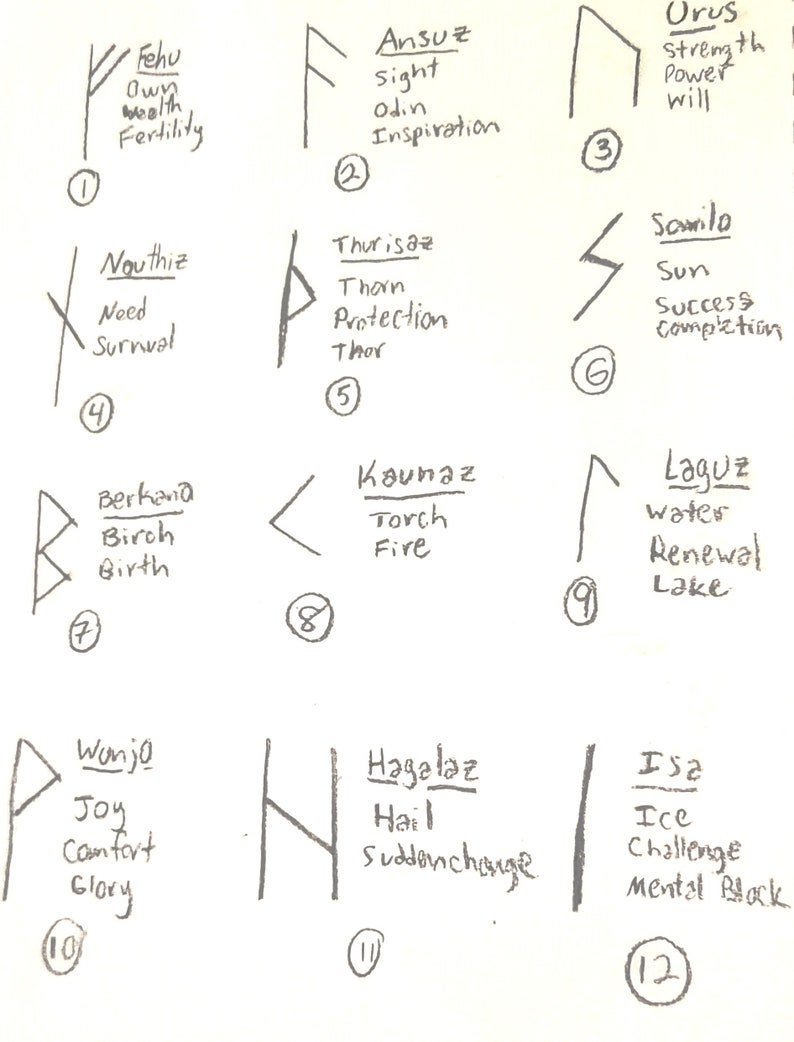 Fehu
Own
Wealth
Fertility
1
Ansuz
Sight
Odin
Inspiration
2
Urus
Strength
Power
Will
3
Nauthiz
Need
Survival
4
Thurisaz
Thorn
Protection
Thor
5
Sowilo
Sun
Success
Completion
6
Berkana
Birch
Birth
7
Kaunaz
Torch
Fire
8
Laguz
Water
Renewal
Lake
9
Wunjo
Joy
Comfort
Glory
10
Hagalaz
Hail
Sudden change
11
Isa
Ice
Challenge
Mental Block
12